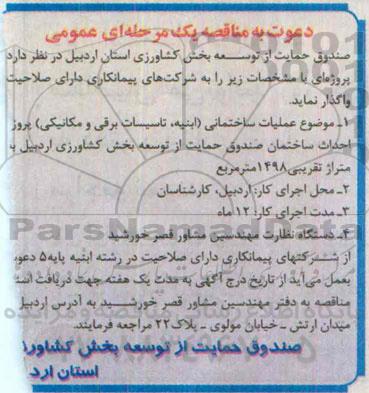 دعوت به مناقصه یک مرحله‌ای عمومی
صندوق حمایت از توسعه بخش کشاورزی استان اردبیل در نظر دارد
پروژه‌ای با مشخصات زیر را به شرکت‌های پیمانکاری دارای صلاحیت
واگذار نماید.
۱ـ موضوع عملیات ساختمانی (ابنیه، تاسیسات برقی و مکانیکی) پروژ
احداث ساختمان صندوق حمایت از توسعه بخش کشاورزی اردبیل به
متراژ تقریبی ۱۴۹۸مترمربع
۲ـ محل اجرای کار: اردبیل، کارشناسان
۳ـ مدت اجرای کار: ۱۲ ماه
ParsNamadData
۴ـ دستگاه نظارت مهندسین مشاور قصر خورشید
از شرکتهای پیمانکاری دارای صلاحیت در رشته ابنیه پایه۵ دعوت
بعمل می‌آید از تاریخ درج آگهی به مدت یک هفته جهت دریافت اسنا
مناقصه به دفتر مهندسین مشاور قصر خورشید به آدرس اردبیل
میدان ارتش ـ خیابان مولوی ـ پلاک۲۲ مراجعه فرمایند.
صندوق حمایت از توسعه بخش کشاورز
استان ارد